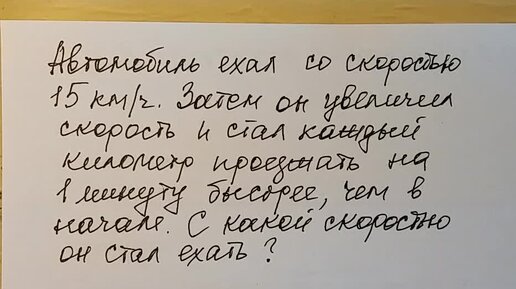 Автомобиль ехал со скоростью
15 км/ч. Затем он увеличил
скорость и стал каждый
километр проезжать на
1 минуту быстрее, чем в
начале. С какой скоростью
он стал ехать?